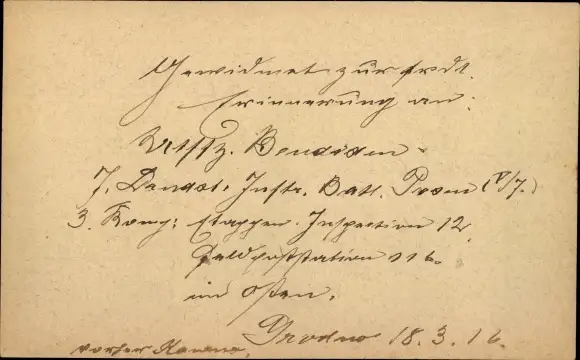 Gewidmet zur frdl.
Erinnerung an:
Utffz. Bendixen
J. Landst. Inftr. Batl. Posen (V/7.)
3. Komp: Etappen-Inspection 12
Feldpoststation 116.
im Osten.
Grodno 18.3.16.
vorher Kowno.